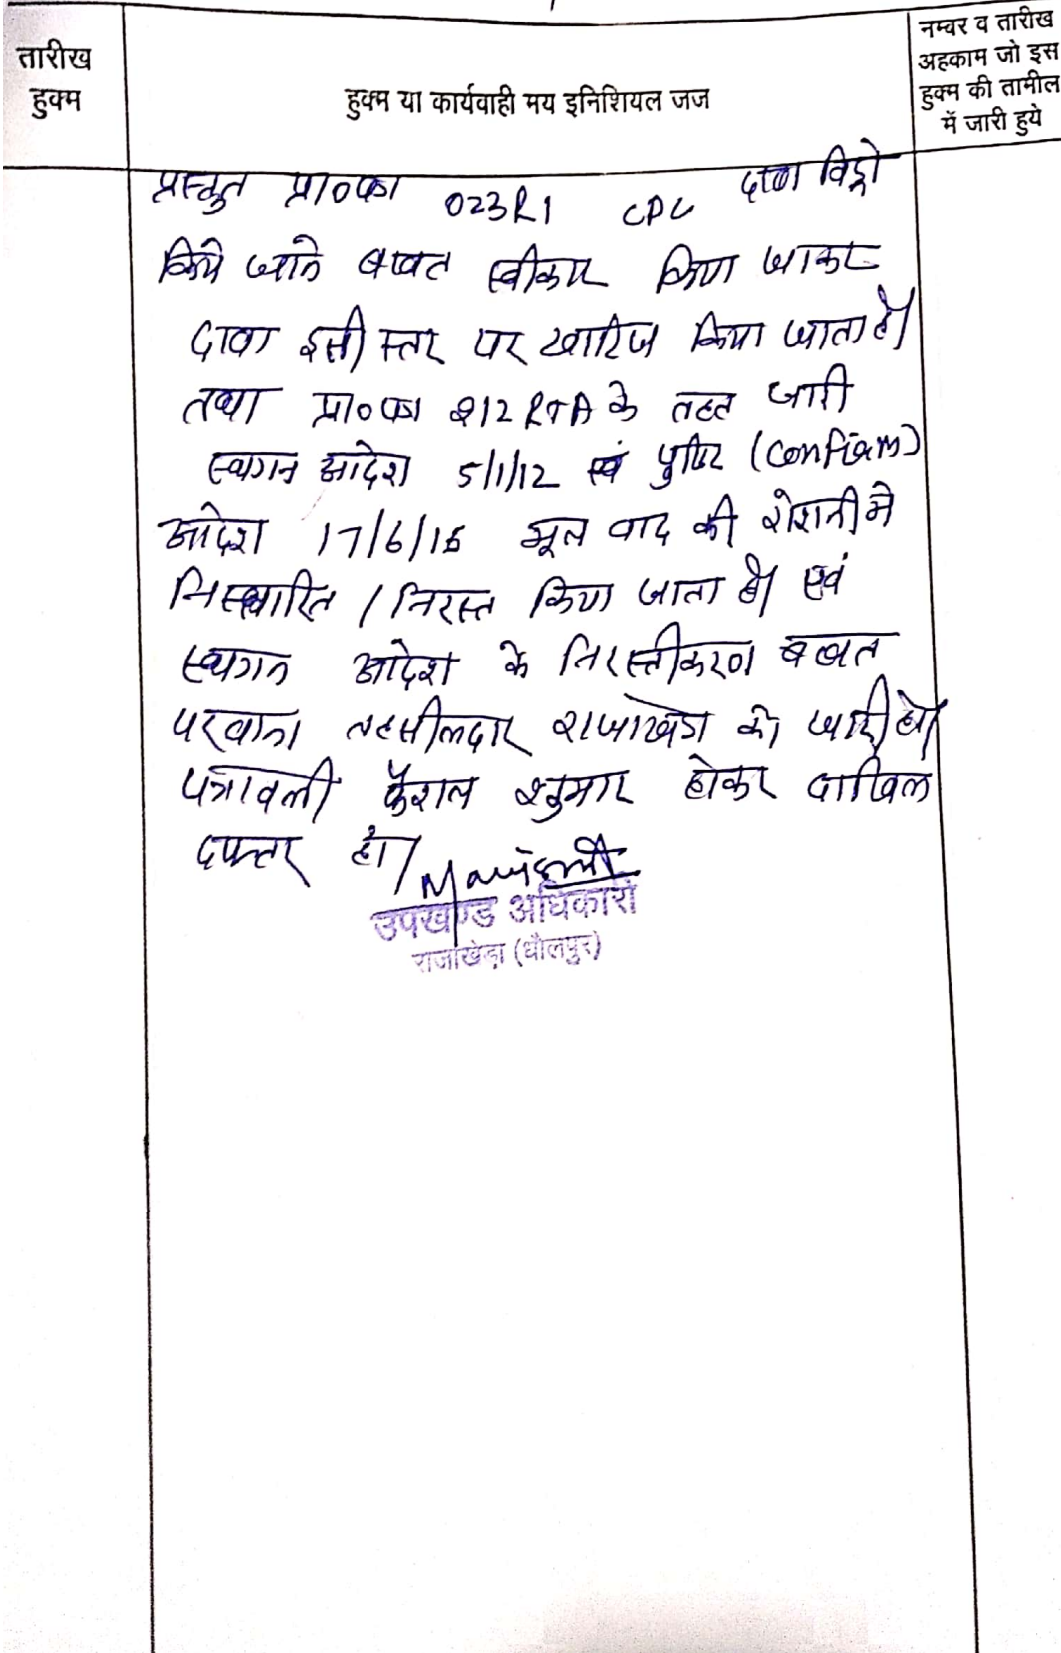 तारीख
हुक्म
हुक्म या कार्यवाही मय इनिशियल जज
नम्बर व तारीख
अहकाम जो इस
हुक्म की तामील
में जारी हुये
प्रस्तुत प्रा०पत्र 023R1 CPC दावा विड्रो
किये जाने बाबत स्वीकार किया जाकर
दावा इसी स्तर पर खारिज किया जाता है।
तथा प्रा०पत्र 212 RTA के तहत जारी
स्थगन आदेश 5/1/12 एवं पुष्टि (Confirm)
आदेश 17/6/16 मूल वाद की रोशनी मे
निस्तारित / निरस्त किया जाता है। एवं
स्थगन आदेश के निरस्तीकरण बाबत
परवाना तहसीलदार राजाखेडा को जारी हो।
पत्रावली फैशल शुमार होकर दाखिल
दफ्तर हो।
उपखण्ड अधिकारी
राजाखेड़ा (धौलपुर)